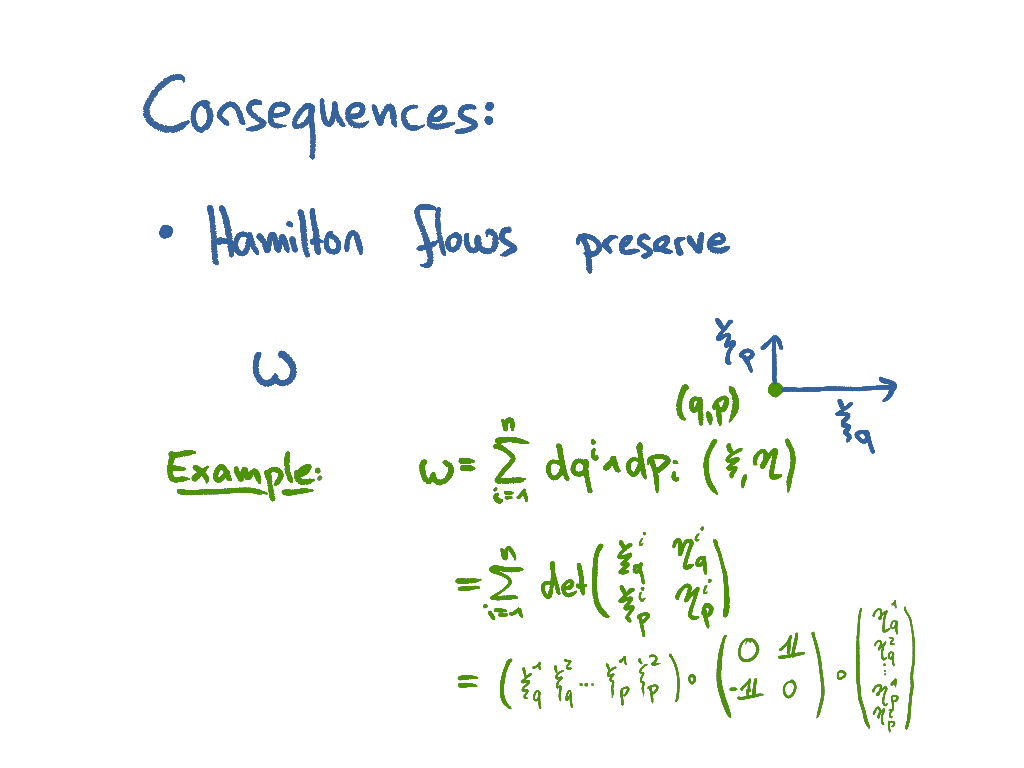 Consequences:
• Hamilton flows preserve
ω
ξ_p
(q,p)
ξ_q
Example: ω = ∑_{i=1}^{n} dq^i ∧ dp_i (ξ, η)
= ∑_{i=1}^{n} det ( ξ_q^i η_q^i
ξ_p^i η_p^i )
= ( ξ_q^1 ξ_q^2 ... ξ_p^1 ξ_p^2 ) ∘ ( 0 𝟙
-𝟙 0 ) ∘ ( η_q^1
η_q^2
⋮
η_p^1
η_p^2 )